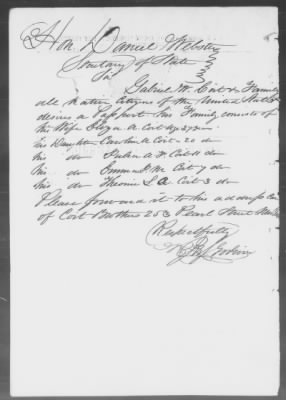 Hon. Daniel Webster
Secretary of State
Sir
Gabriel W. Coit & Family
all native Citizens of the United States
desires a Passport his Family consists of
his Wife A Coit Age 37
his Daughter Caroline A Coit - 20 do
his do Julia A F. Coit 11 do
his do M Coit 9 do
his do L A Coit 3 do
Please forward it to his address
of Coit Brothers 253 Pearl Street
Respectfully